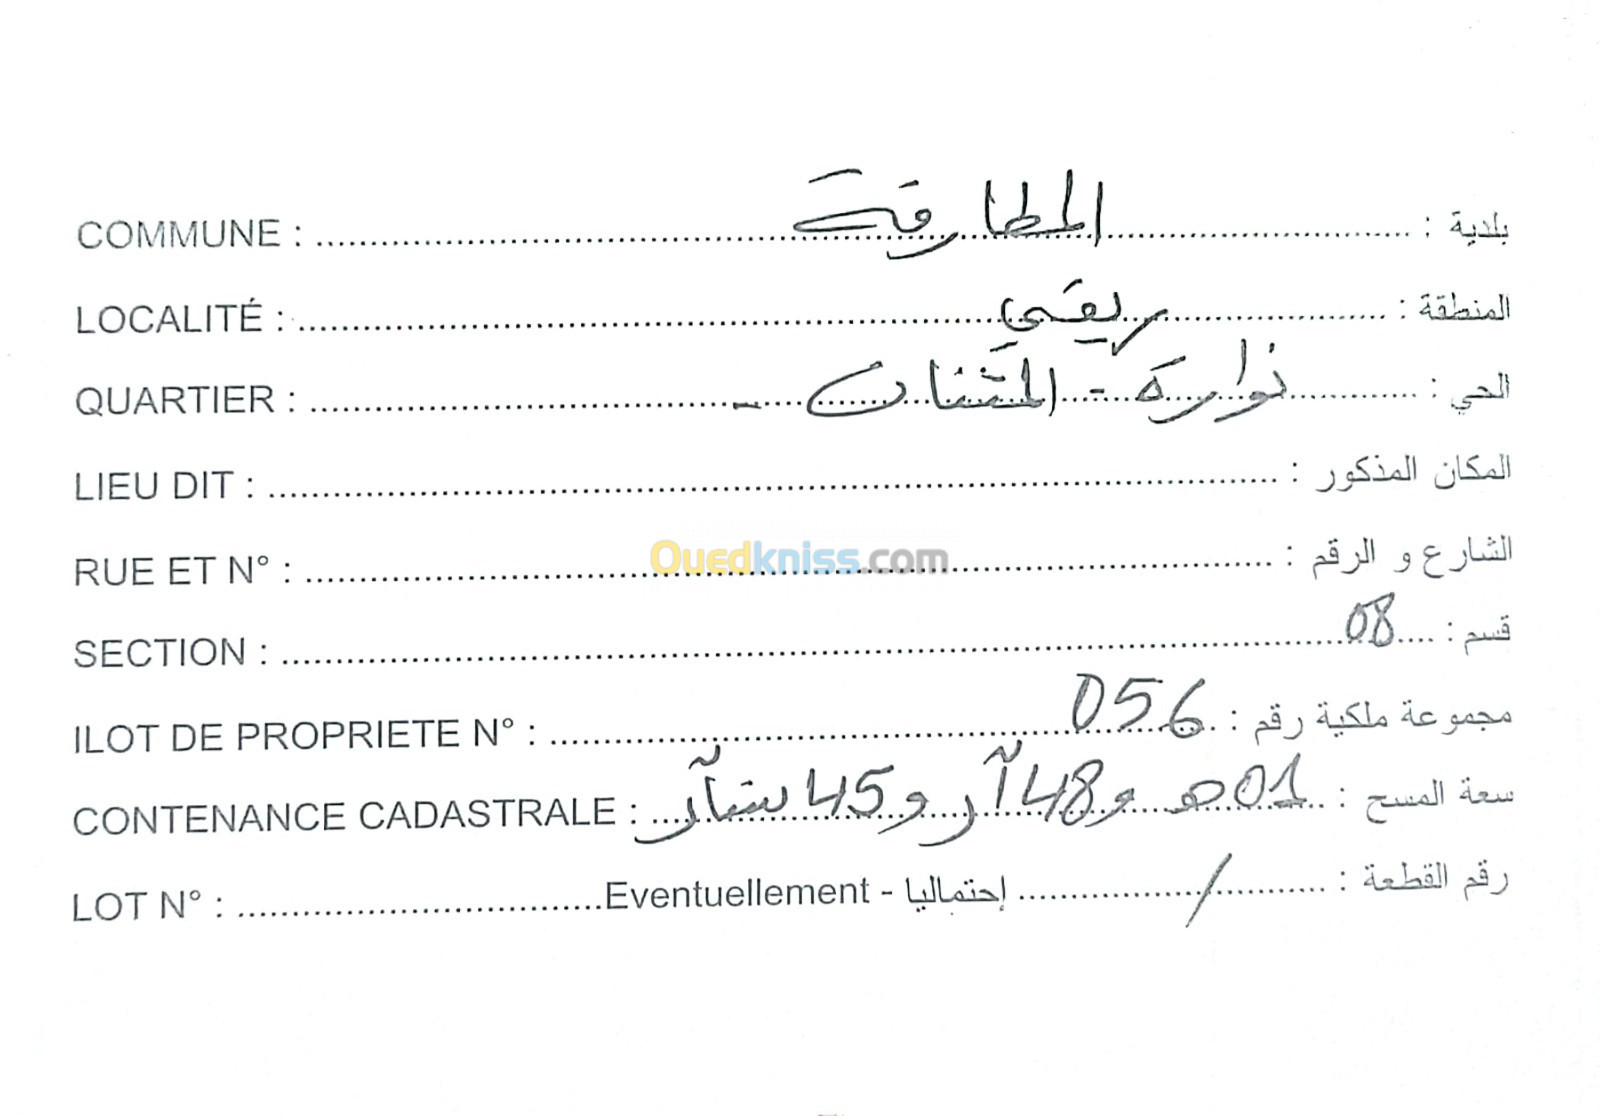 COMMUNE : ........ المطارفة ........ : بلدية
LOCALITÉ : ........ ريفي ........ : المنطقة
QUARTIER : ........ - نوارة - ........ : الحي
LIEU DIT : ........ : المكان المذكور
RUE ET N° : ........ : الشارع و الرقم
Ouedkniss.com
SECTION : ........ 08 .... : قسم
ILOT DE PROPRIETE N° : ........ 056 . : مجموعة ملكية رقم
CONTENANCE CADASTRALE : .... 01هـ و 48 آر و 45 سنآر .. : سعة المسح
LOT N° : ........ Eventuellement - إحتماليا ........ / ........ : رقم القطعة